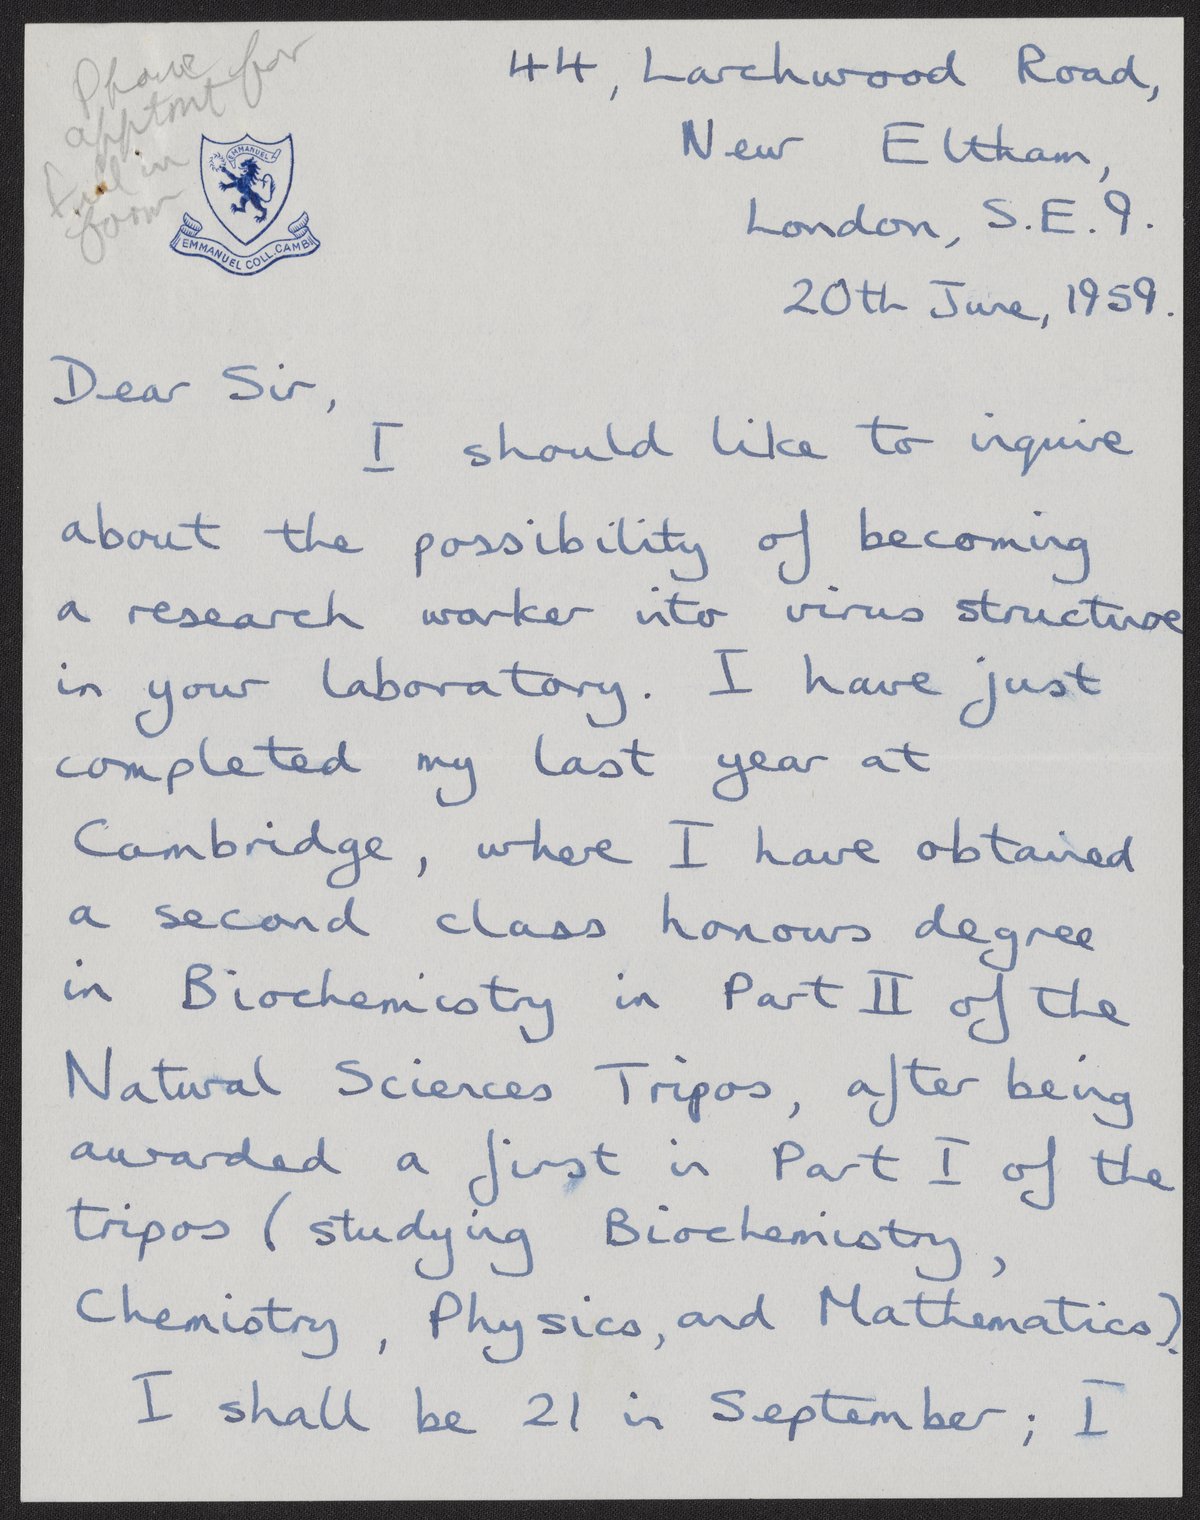 Phone
apptmt for
fill in
form
EMMANUEL
EMMANUEL COLL. CAMB
44, Larchwood Road,
New Eltham,
London, S.E.9.
20th June, 1959.
Dear Sir,
I should like to inquire
about the possibility of becoming
a research worker into virus structure
in your laboratory. I have just
completed my last year at
Cambridge, where I have obtained
a second class honours degree
in Biochemistry in Part II of the
Natural Sciences Tripos, after being
awarded a first in Part I of the
tripos (studying Biochemistry,
Chemistry, Physics, and Mathematics).
I shall be 21 in September; I